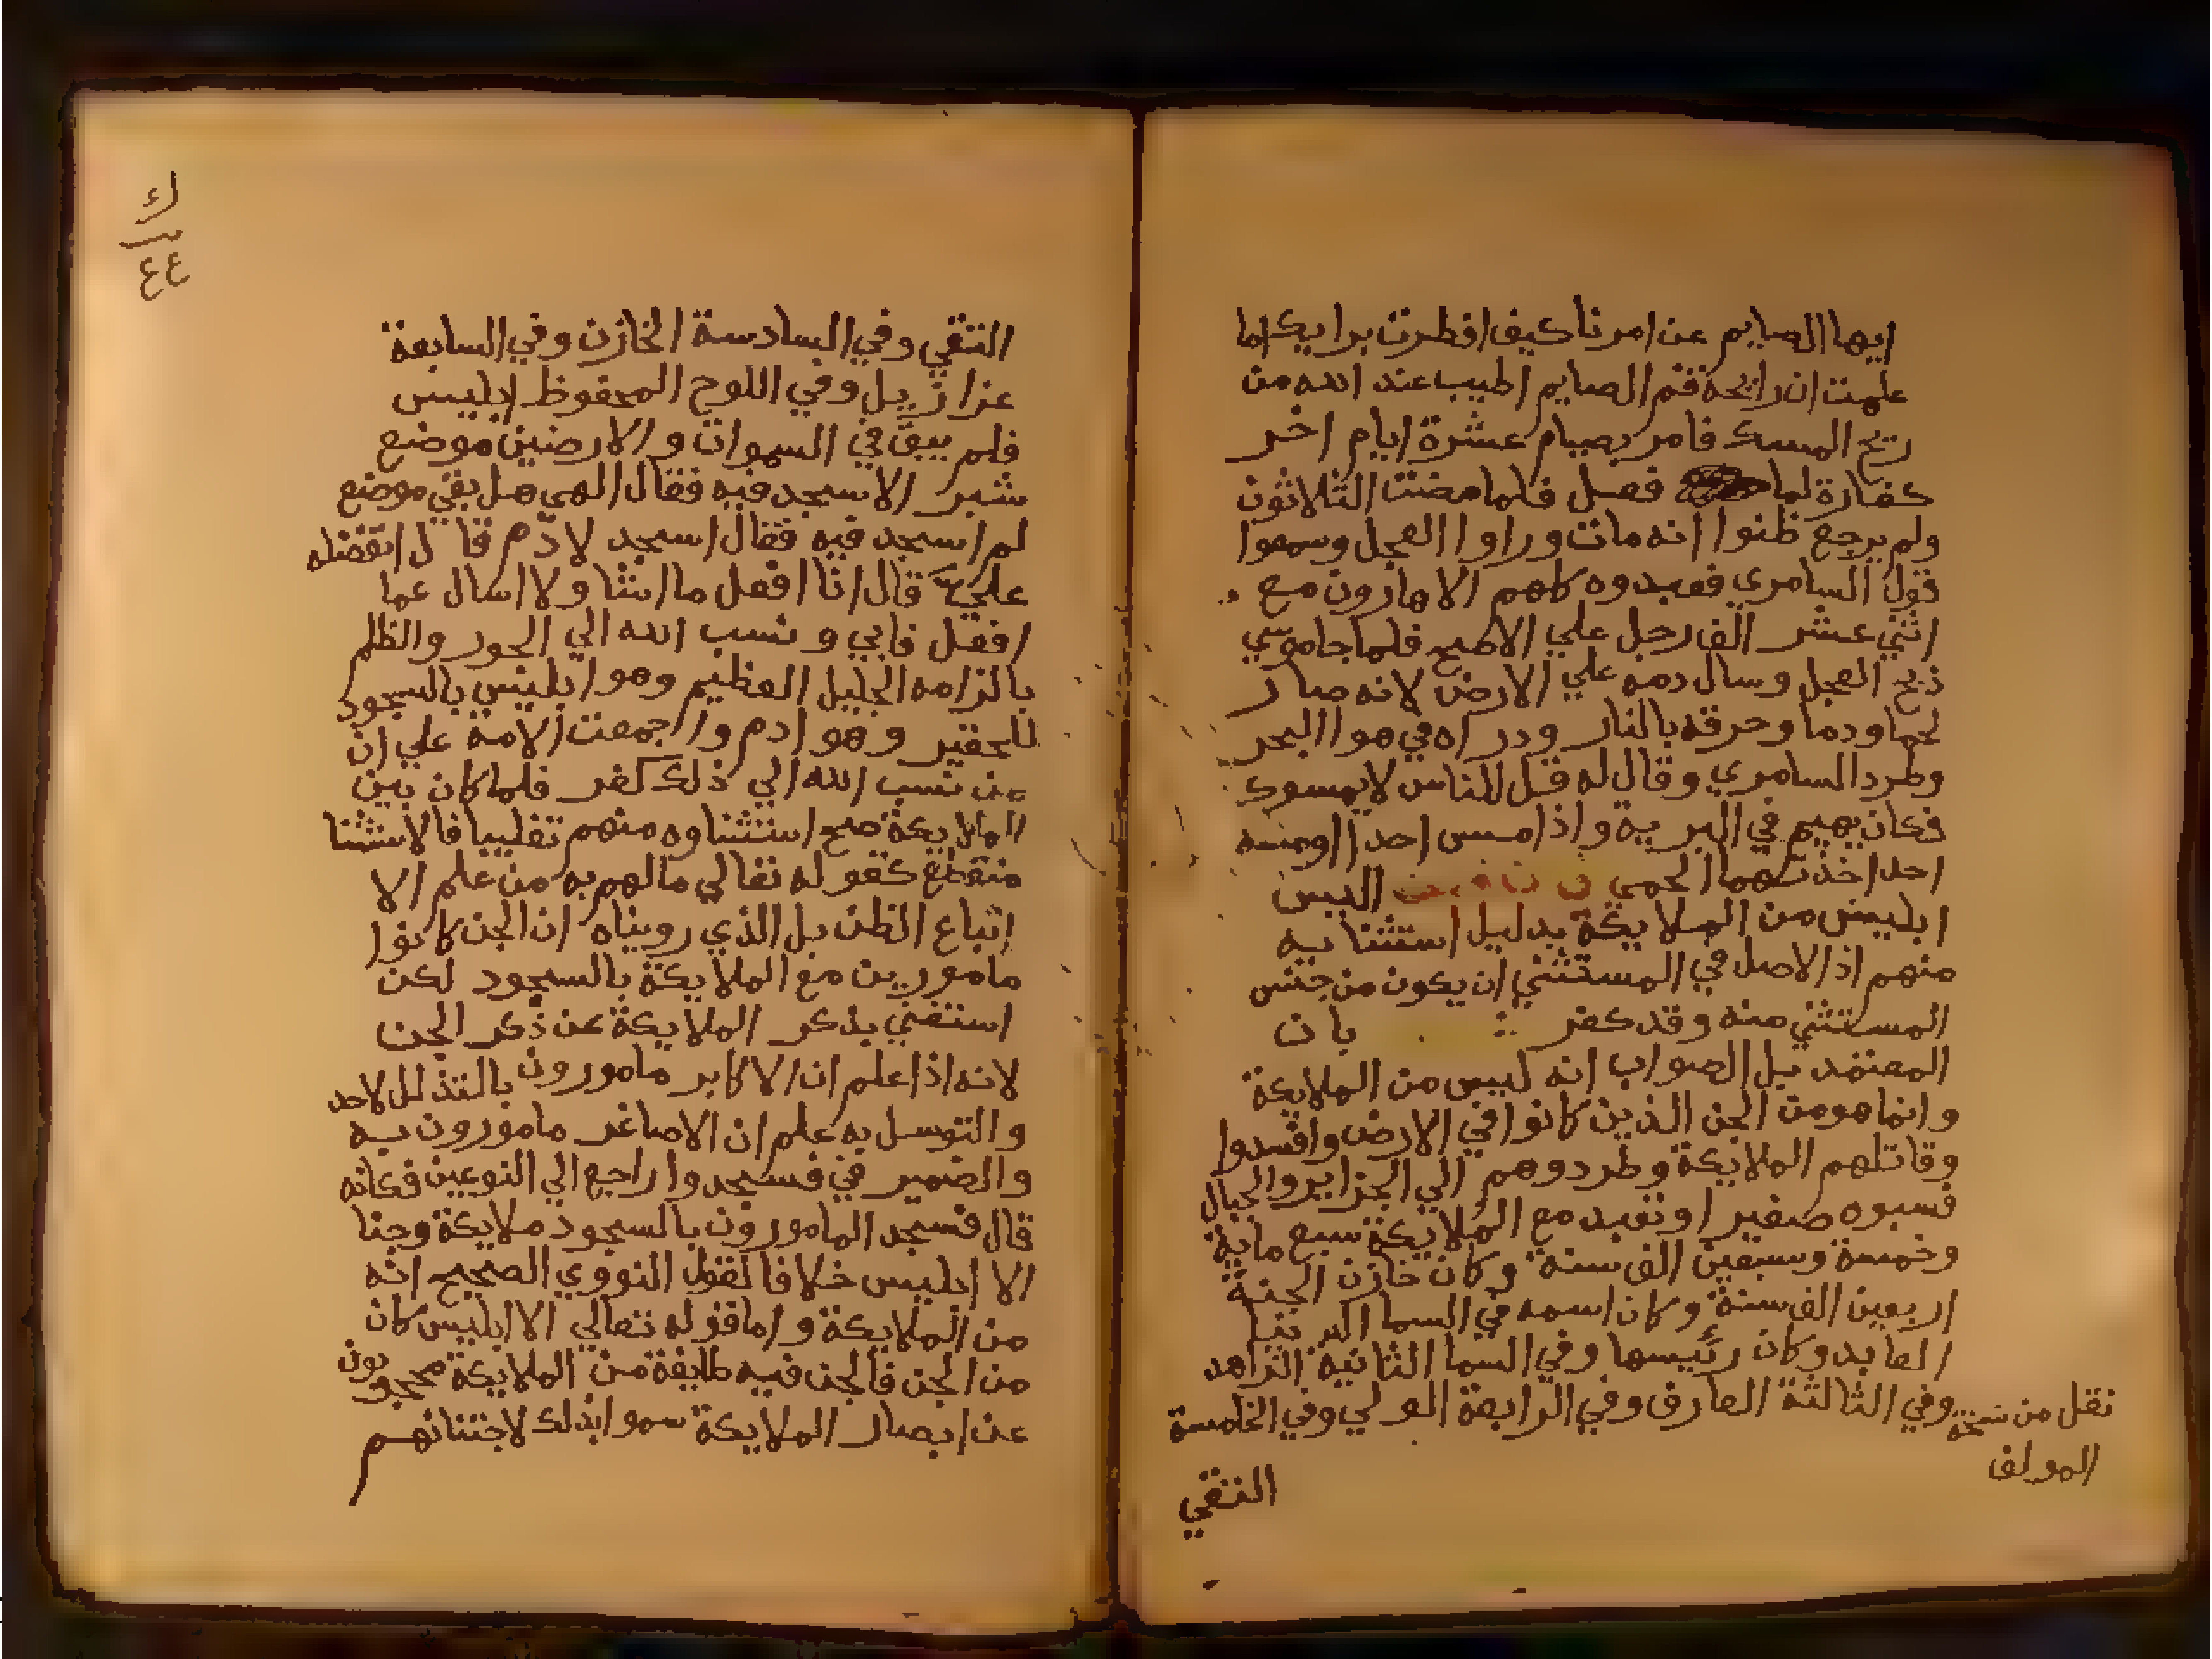 ايها الصايم عن امرنا كيف افطرت برايك اما
علمت ان رايحة فم الصايم اطيب عند الله من
ريح المسك فامر بصيام عشرة ايام اخر
كفارة لما فعل فلما مضت الثلاثون
ولم يرجع ظنوا انه مات وراوا العجل وسمعوا
قول السامري فعبدوه كلهم الا هارون مع
اثني عشر الف رجل علي الاصح فلما جا موسي
ذبح العجل وسال دمه علي الارض لانه صار
لحما ودما وحرقه بالنار ودراه في هوا البحر
وطرد السامري وقال له قل للناس لا يمسوك
فكان يهيم في البرية واذا مس احدا او مسه
احد اخذتهما الحمي اليس
ابليس من الملايكة بدليل استثنايه
منهم اذ الاصل في المستثني ان يكون من جنس
المستثني منه وقد كفر بان
المعتمد بل الصواب انه ليس من الملايكة
وانما هو من الجن الذين كانوا في الارض وافسدوا
وقاتلهم الملايكة وطردوهم الي الجزاير والجبال
فسبوه صغيرا وتعبد مع الملايكة سبع ماية
وخمسة وسبعين الف سنة وكان خازن الجنة
اربعين الف سنة وكان اسمه في السما الدنيا
العابد وكان رئيسها وفي السما الثانية الزاهد
وفي الثالثة العارف وفي الرابعة الولي وفي الخامسة
التقي
نقل من نسخة
المولف
ك
٤٤
التقي وفي السادسة الخازن وفي السابعة
عزازيل وفي اللوح المحفوظ ابليس
فلم يبق في السموات والارضين موضع
شبر الا سجد فيه فقال الهي هل بقي موضع
لم اسجد فيه فقال اسجد لادم قال اتفضله
علي قال انا افعل ما اشا ولا اسال عما
افعل فابي ونسب الله الي الجور والظلم
بالزامه الجليل العظيم وهو ابليس بالسجود
للحقير وهو ادم واجمعت الامة علي ان
من نسب الله الي ذلك كفر فلما كان بين
الملايكة صح استثناوه منهم تغليبا فالاستثنا
منقطع كقوله تعالي مالهم به من علم الا
اتباع الظن بل الذي رويناه ان الجن كانوا
مامورين مع الملايكة بالسجود لكن
استغني بذكر الملايكة عن ذكر الجن
لانه اذا علم ان الاكابر مامورون بالتذلل لاحد
والتوسل به علم ان الاصاغر مامورون به
والضمير في فسجدوا راجع الي النوعين فكانه
قال فسجد المامورون بالسجود ملايكة وجنا
الا ابليس خلافا لقول النووي الصحيح انه
من الملايكة واما قوله تعالي الا ابليس كان
من الجن فالجن فيه طايفة من الملايكة محجوبون
عن ابصار الملايكة سموا بذلك لاجتنانهم